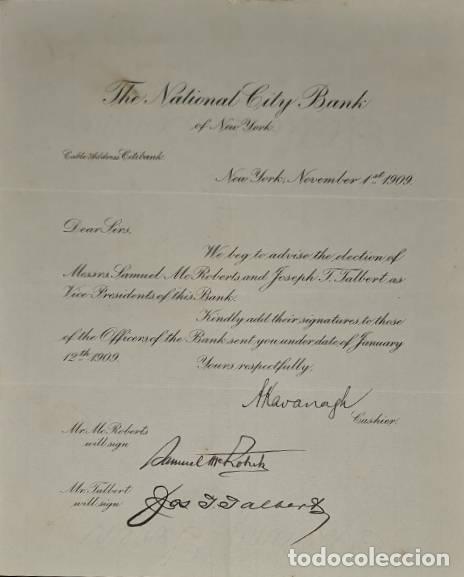 The National City Bank
of New York.
Cable Address Citibank.
New York, November 1st 1909.
Dear Sirs,
We beg to advise the election of
Messrs. Samuel Mc Roberts and Joseph T. Talbert as
Vice-Presidents of this Bank.
Kindly add their signatures to those
of the Officers of the Bank sent you under date of January
12th 1909. Yours respectfully,
A Kavanagh
Cashier.
Mr. Mc Roberts
will sign
Samuel McRoberts
Mr. Talbert
will sign
Jos T. Talbert
todocoleccion
todocoleccion.net